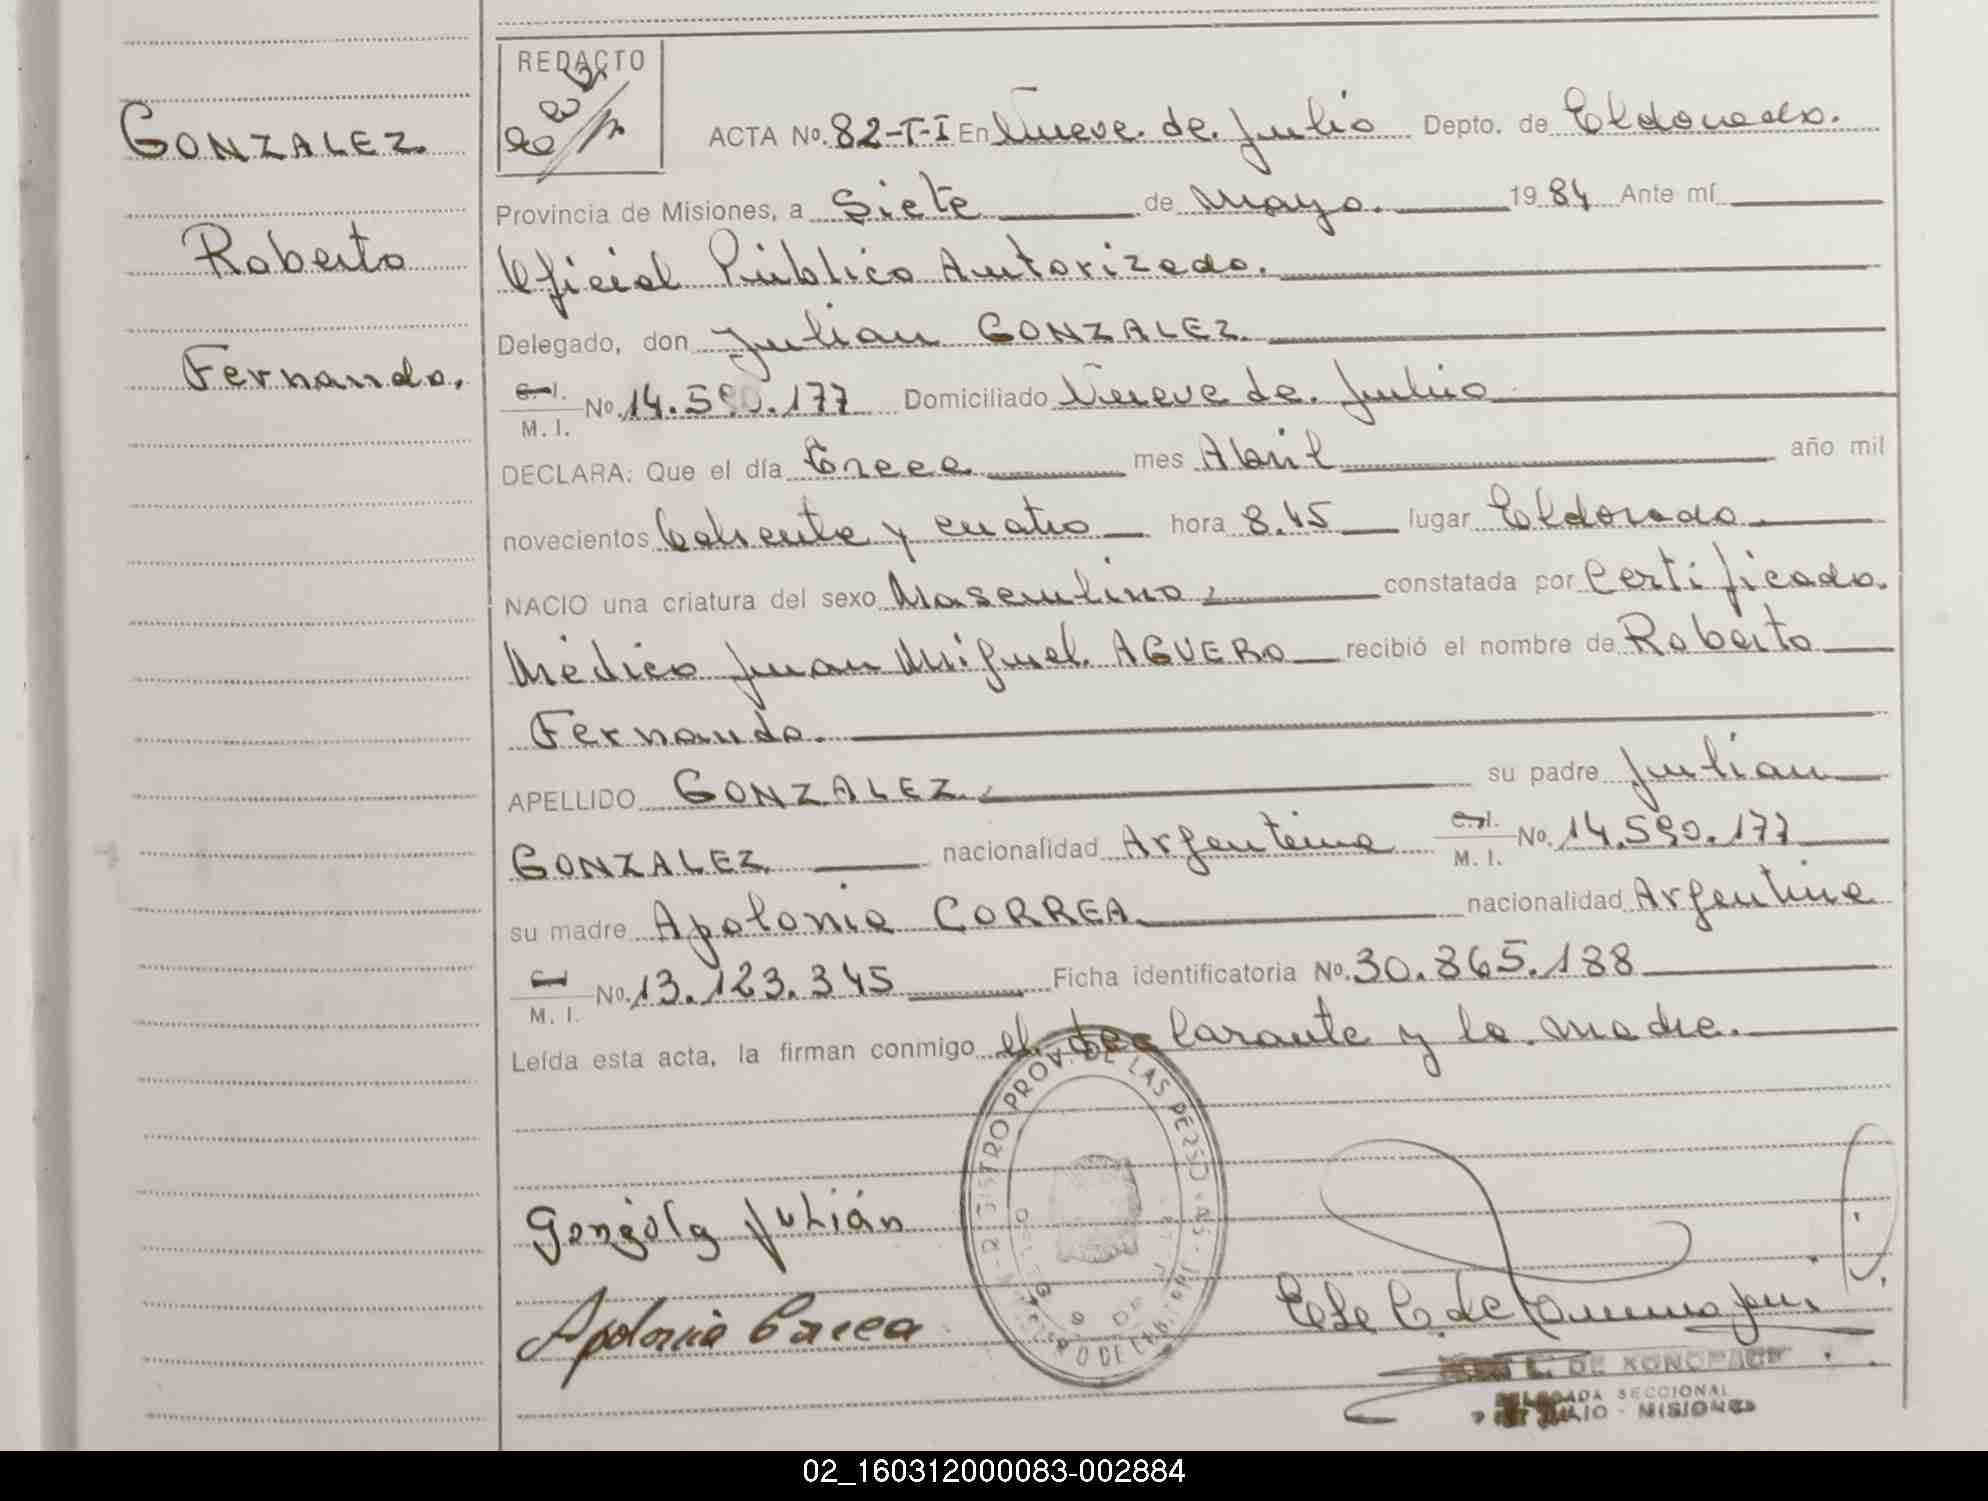 GONZALEZ
Roberto
Fernando.
REDACTO
ACTA No. 82-T-I En Nueve de Julio Depto. de Eldorado.
Provincia de Misiones, a Siete de Mayo. 1984 Ante mí
Oficial Público Autorizado.
Delegado, don Julian GONZALEZ.
C.I. M. I. No. 14.590.177 Domiciliado Nueve de Julio
DECLARA: Que el día Trece mes Abril año mil
novecientos Ochenta y cuatro hora 8.45 lugar Eldorado.
NACIO una criatura del sexo Masculino, constatada por Certificado.
Médico Juan Miguel AGUERO recibió el nombre de Roberto
Fernando.
APELLIDO GONZALEZ. su padre Julian
GONZALEZ nacionalidad Argentina C.I. M. I. No. 14.590.177
su madre Apolonia CORREA. nacionalidad Argentina
M. I. No. 13.123.345 Ficha identificatoria No. 30.865.188
Leída esta acta, la firman conmigo el declarante y la madre.
REGISTRO PROV. DE LAS PERSONAS
Julián
Apolonia
DE KONOPACKI
DELEGADA SECCIONAL
JULIO - MISIONES
02_160312000083-002884